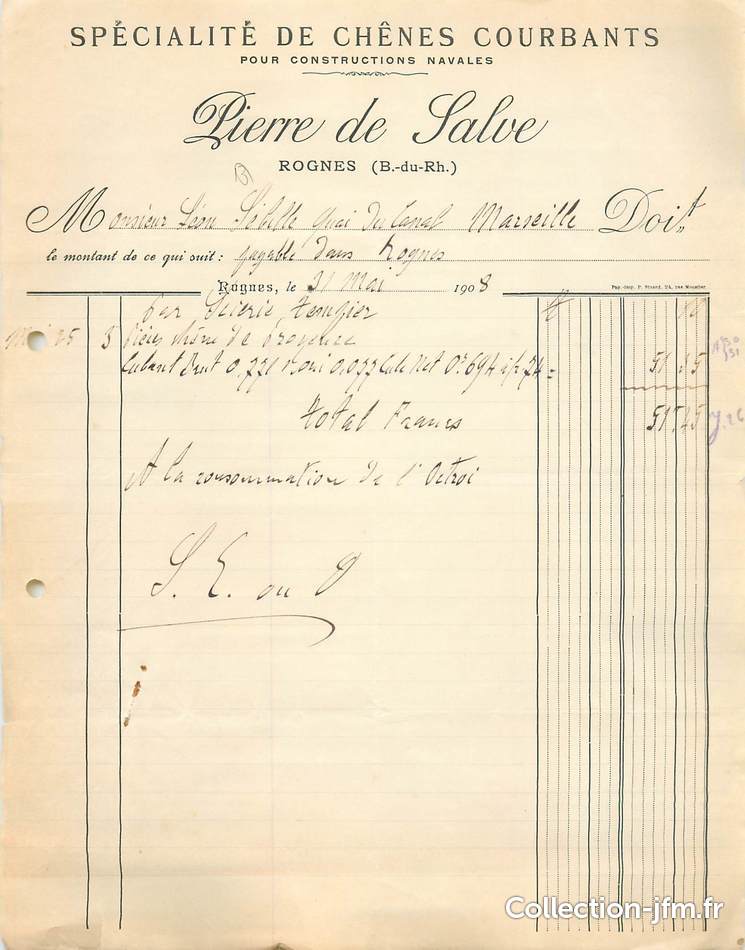 SPÉCIALITÉ DE CHÊNES COURBANTS
POUR CONSTRUCTIONS NAVALES
Pierre de Salve
ROGNES (B.-du-Rh.)
Monsieur Léon Sébille quai du Canal Marseille Doit
le montant de ce qui suit: payable dans Rognes
Rognes, le 31 Mai 1908
Pap.-Imp. P. Ricard, 24, rue
par Scierie
Mai 25 3 Pièces chêne de
Cubant Brut 0,771 0,077 Cube Net 0,694 à fr 74 =
Total Francs 51,45
A la consommation de l'Octroi
S. E. ou O
Collection-jfm.fr